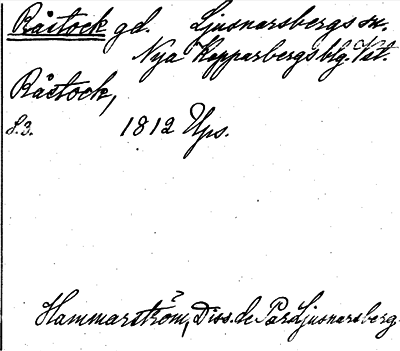 Råstock gd. Ljusnarsbergs sn.
Nya Kopparbergs blg. Vstl.
Råstock,
S. 3. 1812 Ups.
Hammarström, Diss. de Par. Ljusnarsberg.